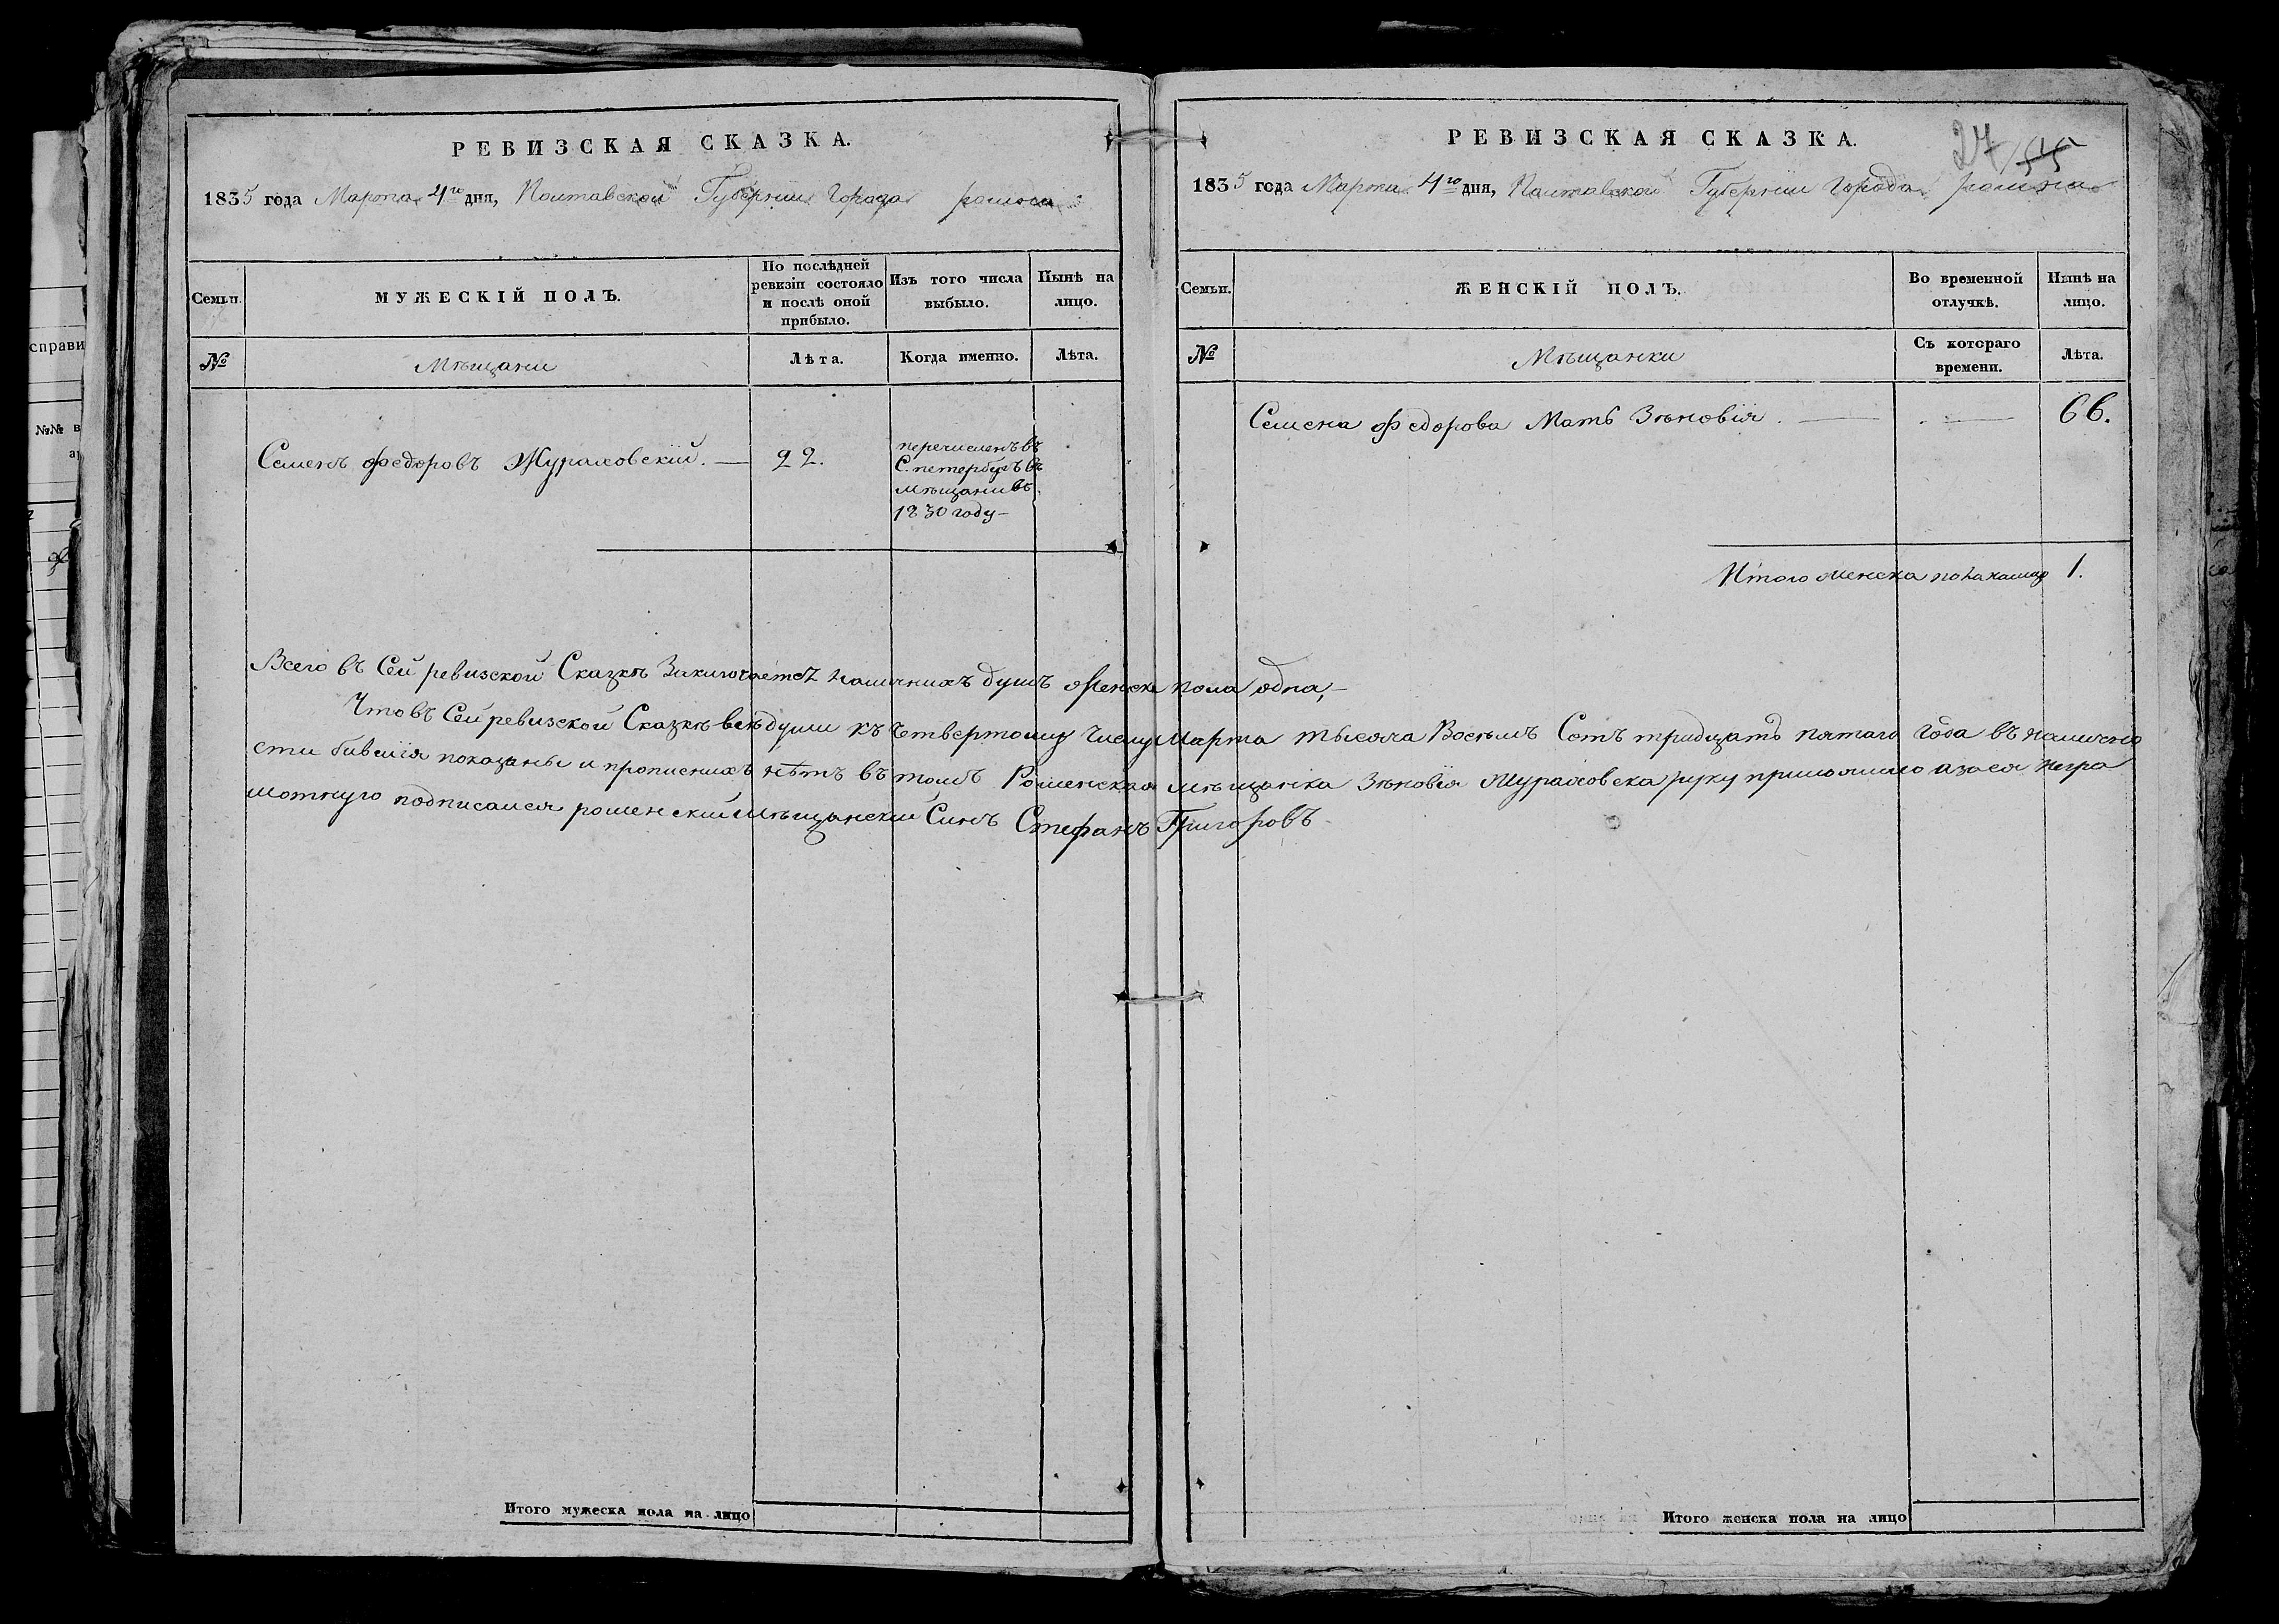 справи
№№ в
РЕВИЗСКАЯ СКАЗКА.
1835 года Марта 4го дня, Полтавской Губернии Города ромна
Семьи.
МУЖЕСКІЙ ПОЛЪ.
По послѣдней
ревизіи состояло
и послѣ оной
прибыло.
Изъ того числа
выбыло.
Нынѣ на
лицо.
№
Мѣщани
Лѣта.
Когда именно.
Лѣта.
Семенъ федоровъ Жураховскій. — 22.
перечисленъ въ
С. петербугъ въ
мѣщани въ
1830 году —
27 55
РЕВИЗСКАЯ СКАЗКА.
1835 года Марта 4го дня, Полтавской Губернии Города ромна
Семьи.
ЖЕНСКІЙ ПОЛЪ.
Во временной
отлучкѣ.
Нынѣ на
лицо.
№
Мѣщанки
Съ котораго
времени.
Лѣта.
Семена федорова Мать Зѣновія. — — 66.
Итого женска пола налицо 1.
Всего въ Сей ревизской Сказкѣ Заключаетсѣ наличнихъ душъ женска пола одна, —
Что въ Сей ревизской Сказкѣ всѣ души къ Четвертому Числу Марта тысяча Восемь Сотъ тридцать пятаго года въ налично
сти бившія показаны и прописнихъ нѣтъ въ томъ Роменская мѣщанка Зѣновія Жураховска руку приложила а за ея негра
мотную подписался роменский мѣщанский Синъ Стефанъ Григоровъ
Итого мужеска пола на лицо
Итого женска пола на лицо